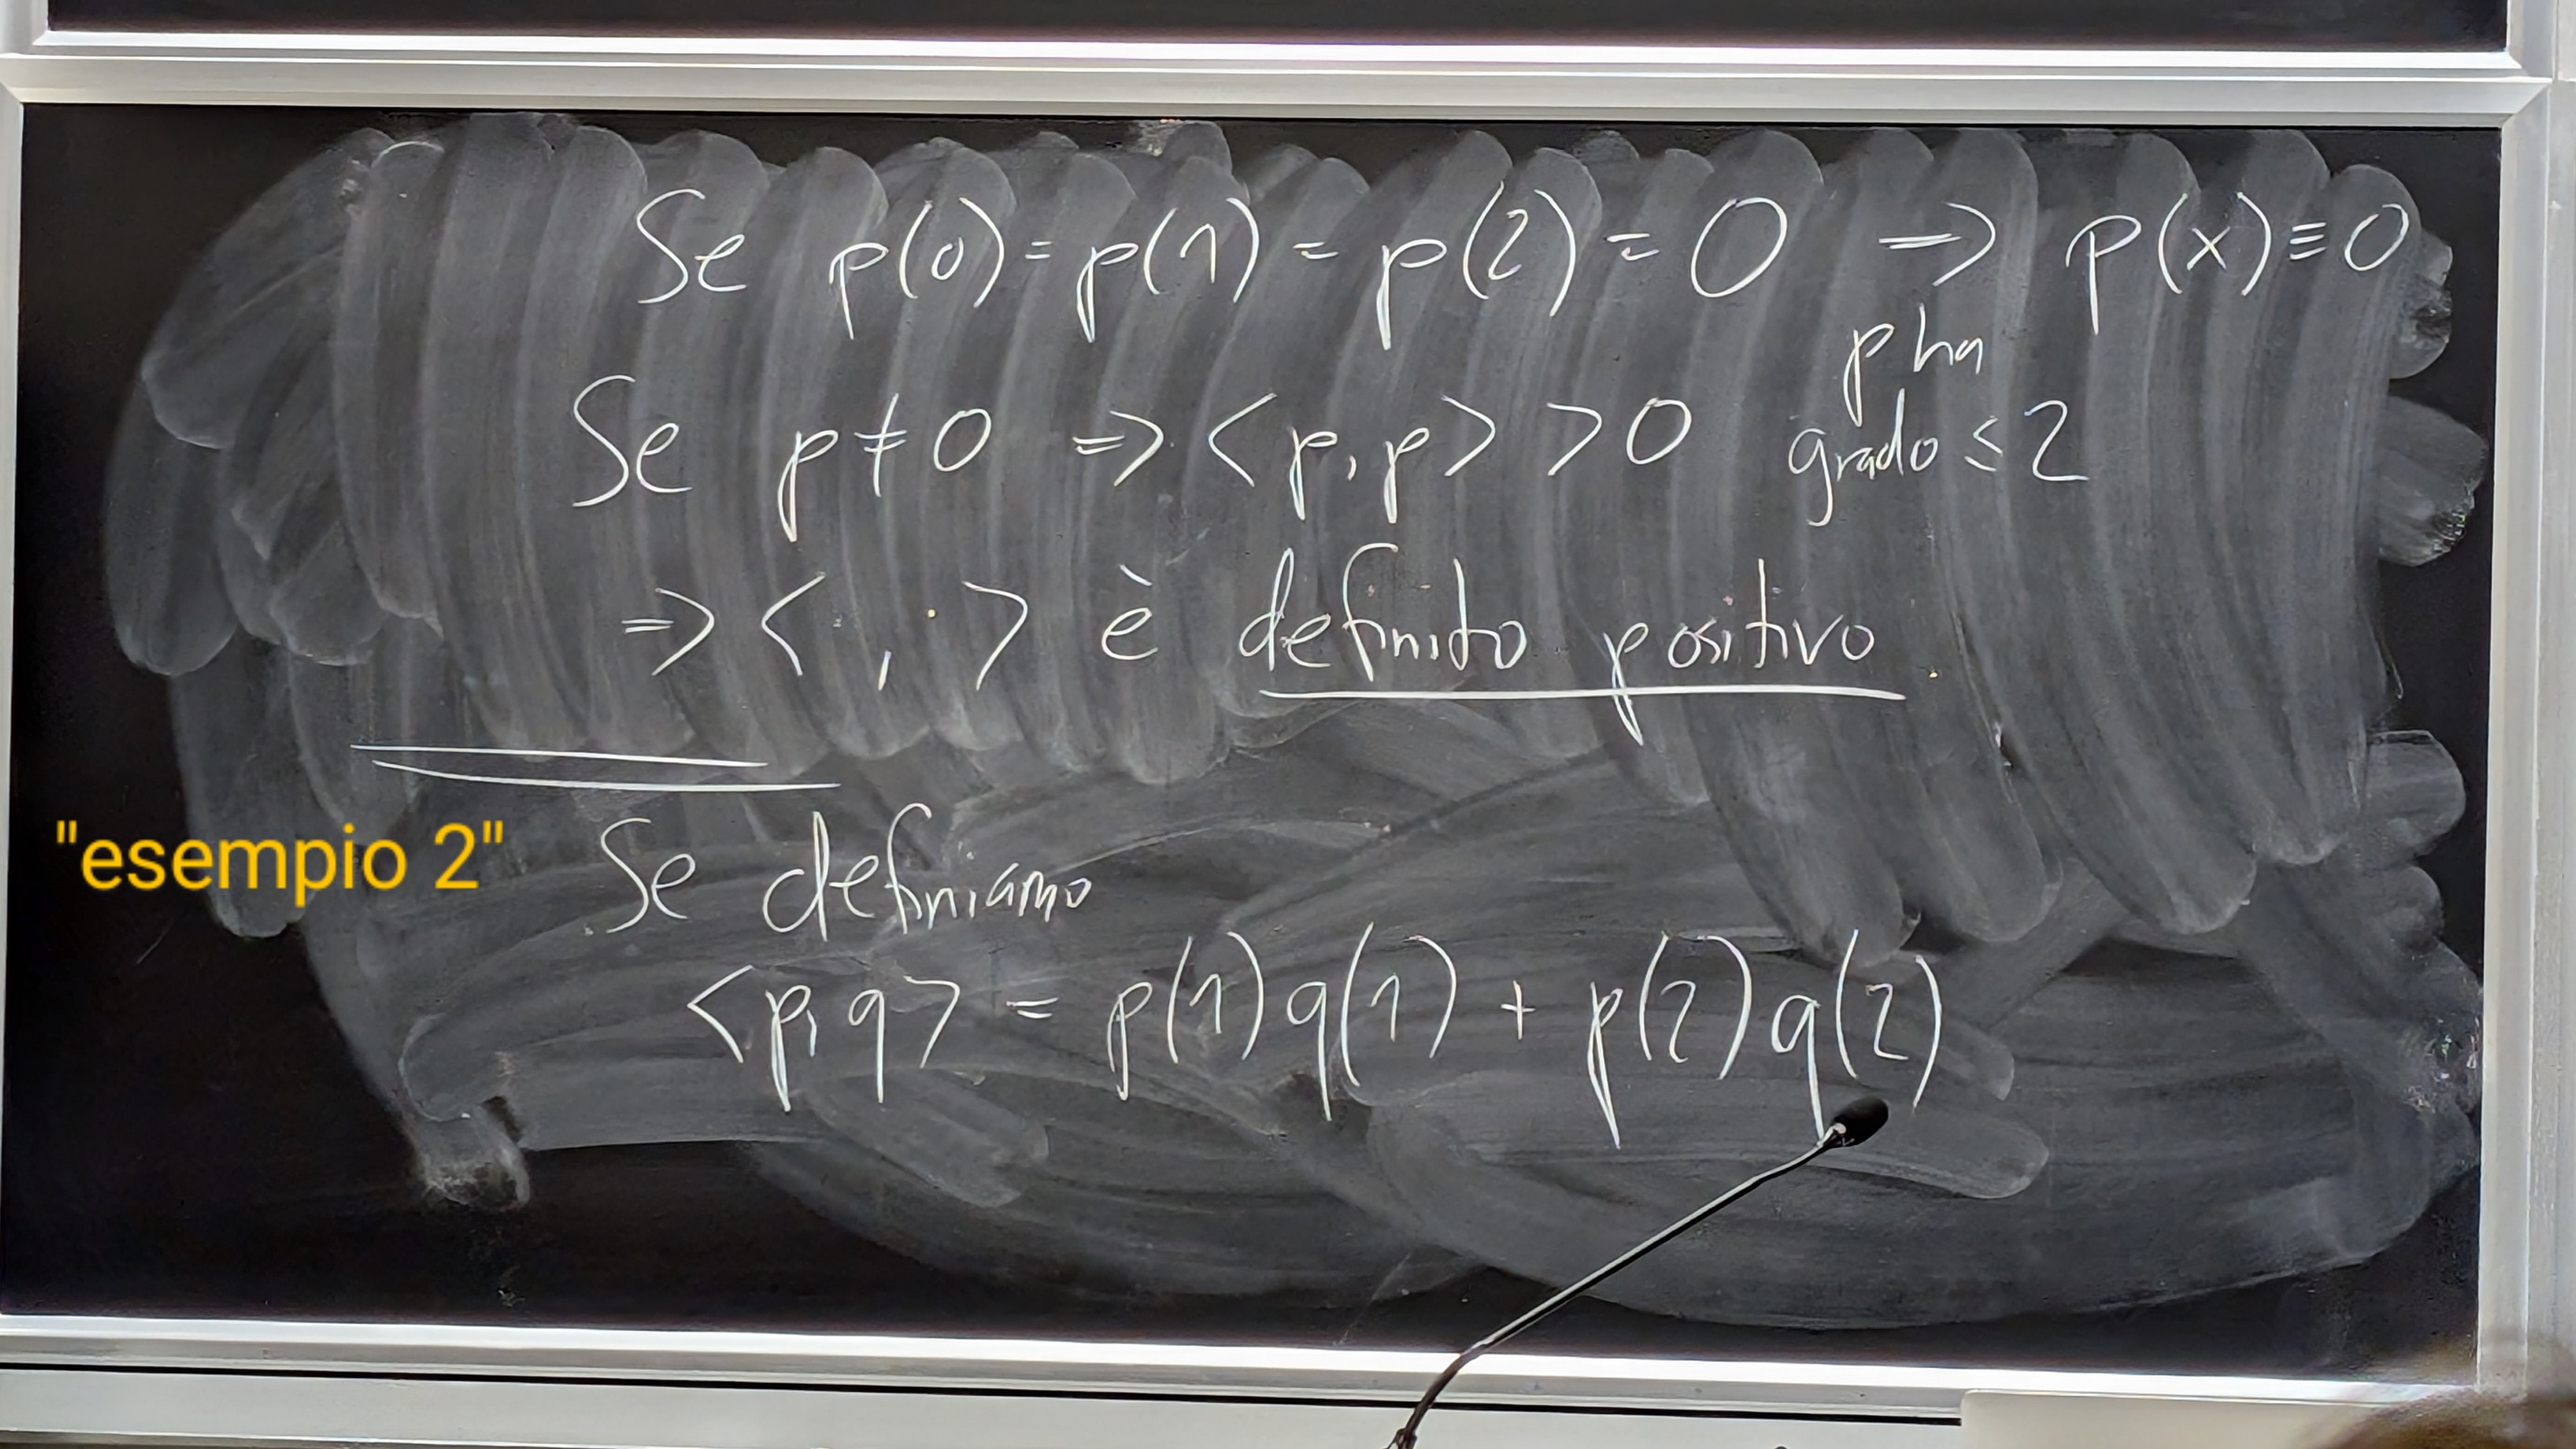 Se p(0) = p(1) = p(2) = 0 ⇒ p(x) ≡ 0
p ha
grado ≤ 2
Se p ≠ 0 ⇒ <p,p> > 0
⇒ < , > è definito positivo
"esempio 2"
Se definiamo
<p,q> = p(1)q(1) + p(2)q(2)